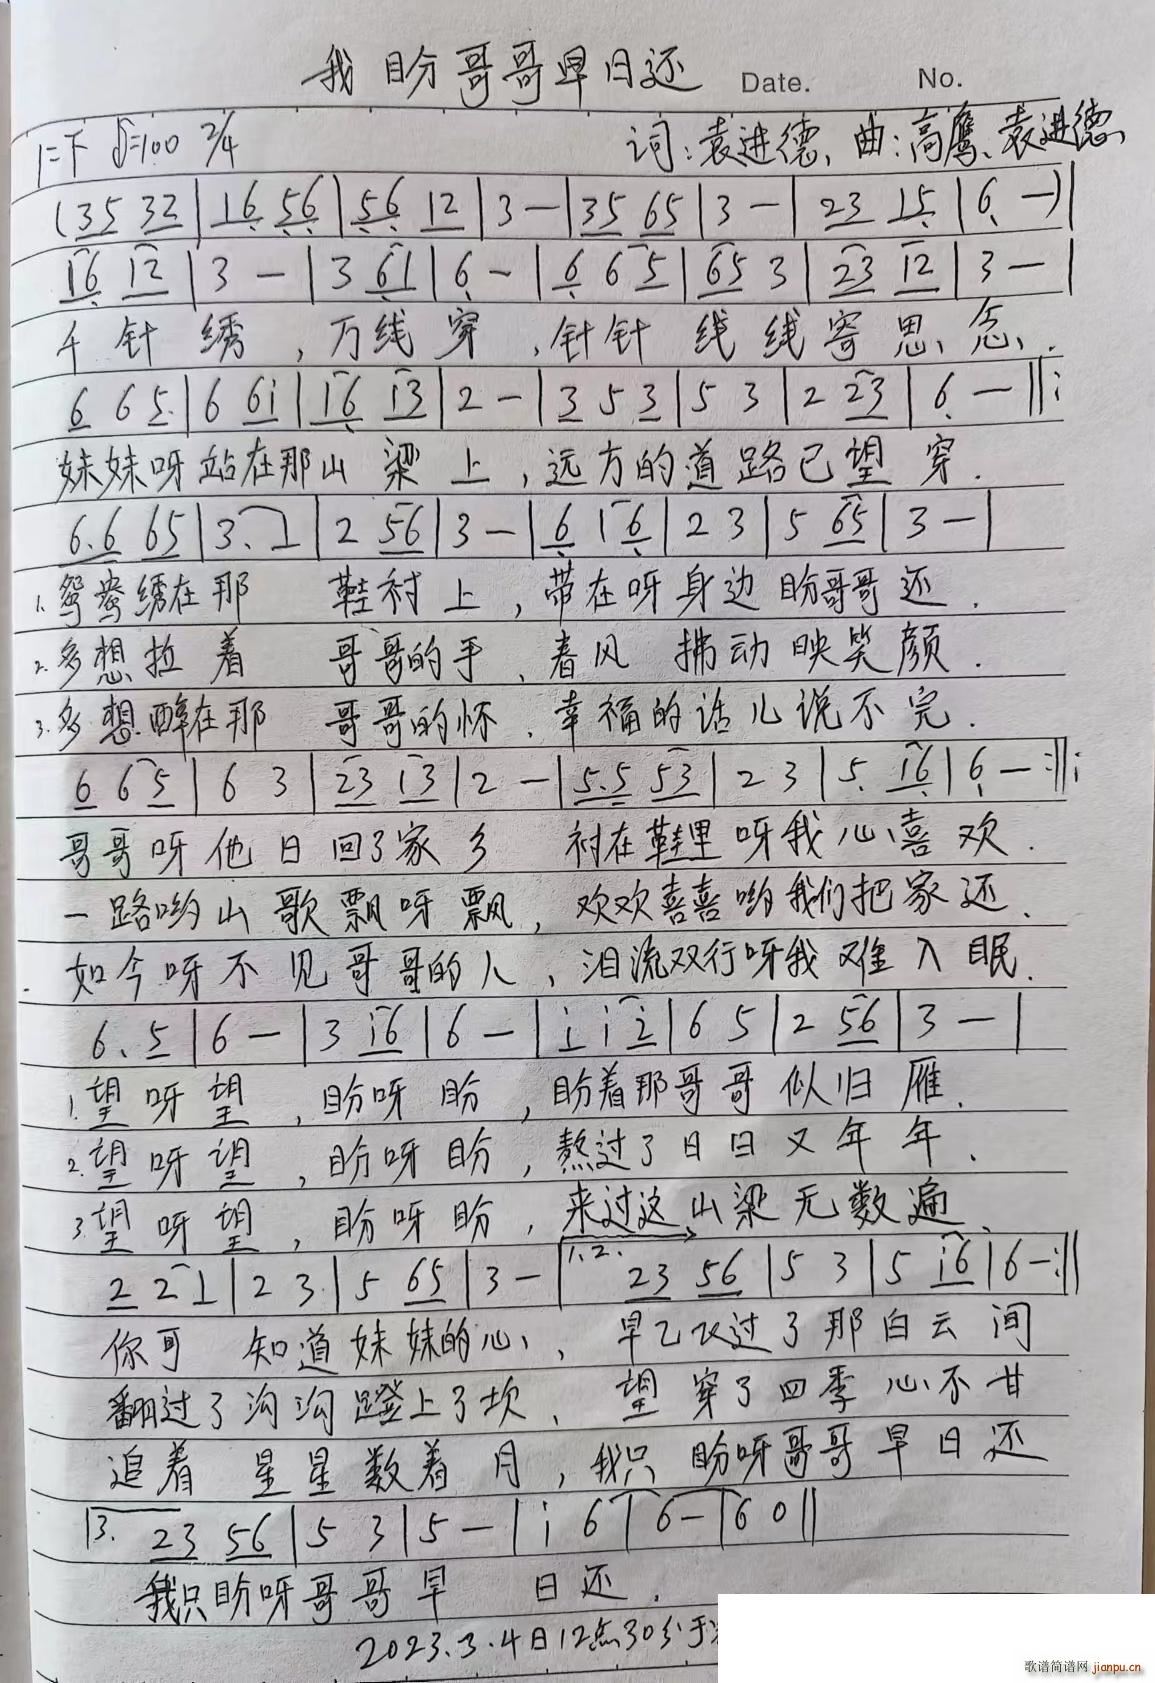 我盼哥哥早日还 Date. No.
1=下 ♩=100 2/4 词:袁进德、曲:高鹰、袁进德、
(35 32|16 56|56 12|3—|35 65|3—|23 15|6 —)|
16 12|3 —|3 61|6 —|6 6 5|65 3|23 12|3 —|
千针绣,万线穿,针针线线寄思念.
6 6 5|6 6i|i6 i3|2 —|3 5 3|5 3|2 23|6 —||:
妹妹呀站在那山梁上,远方的道路已望穿.
6.6 65|3. 1|2 56|3 —|6 1 6|2 3|5 65|3 —|
1.鸳鸯绣在那 鞋衬上,带在呀身边盼哥哥还.
2.多想拉着 哥哥的手,春风拂动映笑颜.
3.多想醉在那 哥哥的怀、幸福的话儿说不完.
6 6 5|6 3|23 13|2 —|5.5 53|2 3|5 16|6 —:||:
哥哥呀他日回了家乡 衬在鞋里呀我心喜欢.
一路哟山歌飘呀飘,欢欢喜喜哟我们把家还.
如今呀不见哥哥的人,泪流双行呀我难入眠.
6. 5|6 —|3 i6|6 —|i i 2|6 5|2 56|3 —|
1.望呀望,盼呀盼,盼着那哥哥似归雁.
2.望呀望,盼呀盼,熬过了日日又年年.
3.望呀望,盼呀盼,来过这山梁无数遍、
2 2 1|2 3|5 65|3 —|1.2. 23 56|5 3|5 i6|6—:||
你可知道妹妹的心、早已飞过了那白云间
翻过了沟沟蹬上了坎、望穿了四季心不甘
追着星星数着月,我只盼呀哥哥早日还
|3. 23 56|5 3|5 —|i 6|6—|6 0||
我只盼呀哥哥早 日还.
2023.3.4日12点30分于
歌谱简谱网 jianpu.cn